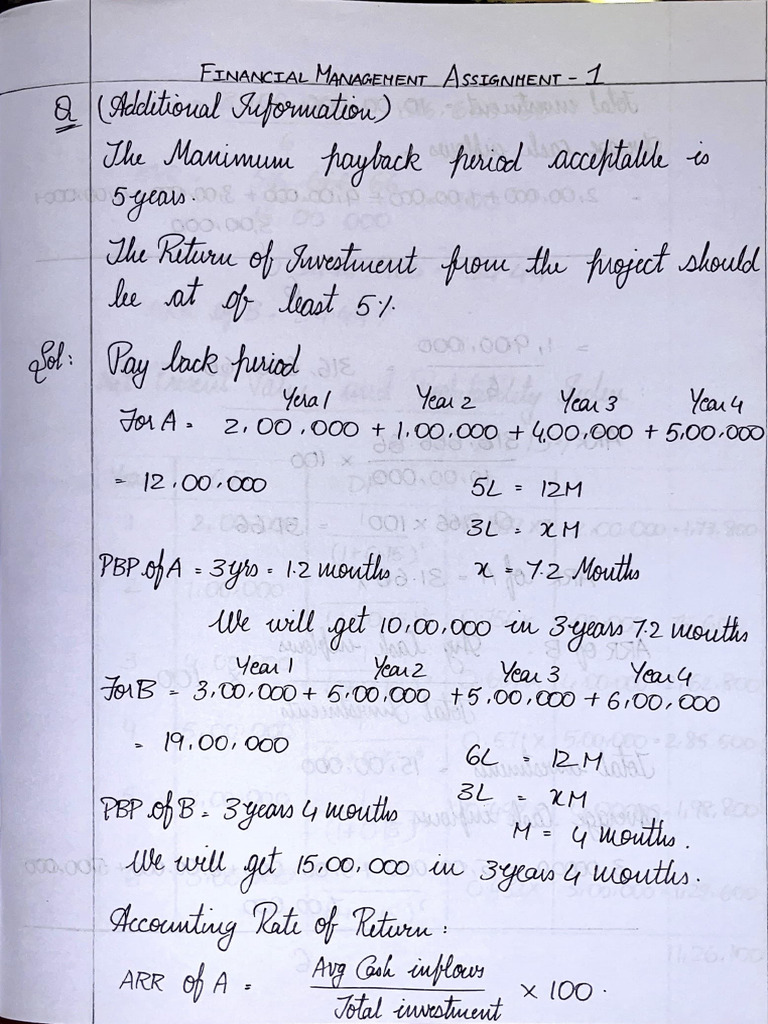 FINANCIAL MANAGEMENT ASSIGNMENT - 1
Q (Additional Information)
The Manimum payback period acceptable is
5 years.
The Return of Investment from the project should
be at of least 5%.
Sol: Pay back period
Yera 1 Year 2 Year 3 Year 4
For A = 2,00,000 + 1,00,000 + 4,00,000 + 5,00,000
= 12,00,000 5L = 12M
3L = xM
PBP.of A = 3 yrs = 1.2 months x = 7.2 Months
We will get 10,00,000 in 3 years 7.2 months
Year 1 Year 2 Year 3 Year 4
For B = 3,00,000 + 5,00,000 + 5,00,000 + 6,00,000
= 19,00,000 6L = 12M
3L = xM
PBP.of B = 3 years 4 months M = 4 months.
We will get 15,00,000 in 3 years 4 months.
Accounting Rate of Return :
ARR of A = Avg Cash inflows / Total investment × 100.